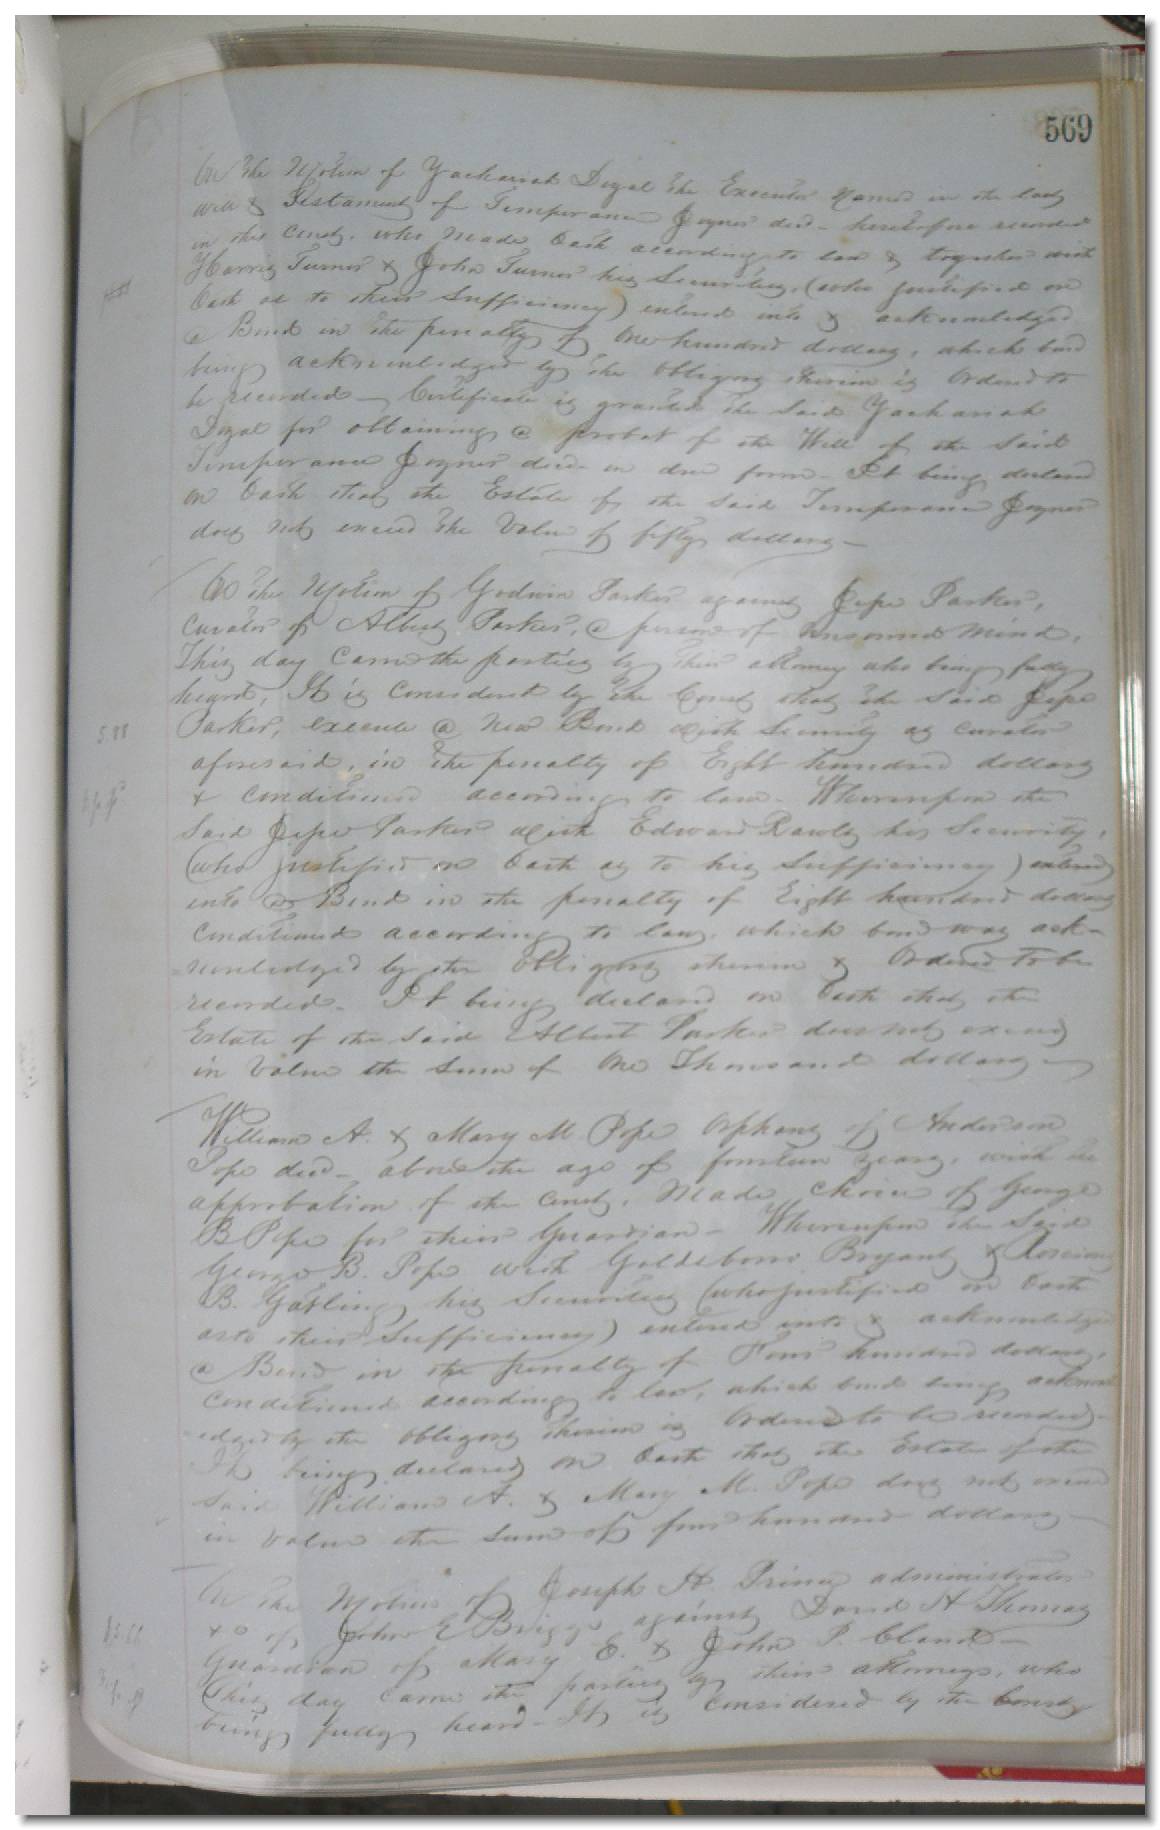 569
On the Motion of Zachariah Deyal the Executor Named in the last
will & Testament of Temperance Joyner decd - heretofore recorded
in this Court, who made Oath according to law & together with
Harris Turner & John Turner his Securities, (who justified on
Oath as to their Sufficiency) entered into & acknowledged
a Bond in the penalty of One hundred dollars, which bond
being acknowledged by the Obligors therein is Ordered to
be recorded - Certificate is granted the Said Zachariah
Deyal for obtaining a probat of the Will of the Said
Temperance Joyner decd in due form - It being declared
on Oath that the Estate of the Said Temperance Joyner
does not exceed the Value of fifty dollars -
On the Motion of Godwin Parker against Jesse Parker,
Curator of Albert Parker, a person of Unsound Mind,
This day Came the parties by their attorney who being fully
heard, It is Considered by the Court that the Said Jesse
Parker, execute a New Bond with Security as curator
aforesaid, in the penalty of Eight hundred dollars
& conditioned according to law. Whereupon the
Said Jesse Parker with Edward Rawls his Security,
(who justified on Oath as to his Sufficiency) entered
into a Bond in the penalty of Eight hundred dollars
Conditioned according to law, which bond was ack-
nowledged by the Obligors therein & Ordered to be
recorded - It being declared on Oath that the
Estate of the Said Albert Parker does not exceed
in Value the Sum of One Thousand dollars -
William A. & Mary M. Pope Orphans of Anderson
Pope decd - above the age of fourteen years, with the
approbation of the Court, Made Choice of George
B Pope for their Guardian - Whereupon the Said
George B. Pope with Goldsboro Bryant &
B. Gatling his Securities (who justified on Oath
as to their Sufficiency) entered into & acknowledged
a Bond in the penalty of Four hundred dollars,
Conditioned according to law, which bond being acknowl
-edged by the Obligors therein is Ordered to be recorded -
It being declared on Oath that the Estate of the
Said William A. & Mary M. Pope does not exceed
in Value the Sum of four hundred dollars -
On the Motion of Joseph H. Prince administrator
&c of John E Briggs against David H Thomas
Guardian of Mary E. & John P. Cland -
This day came the parties by their attorneys, who
being fully heard - It is Considered by the Court